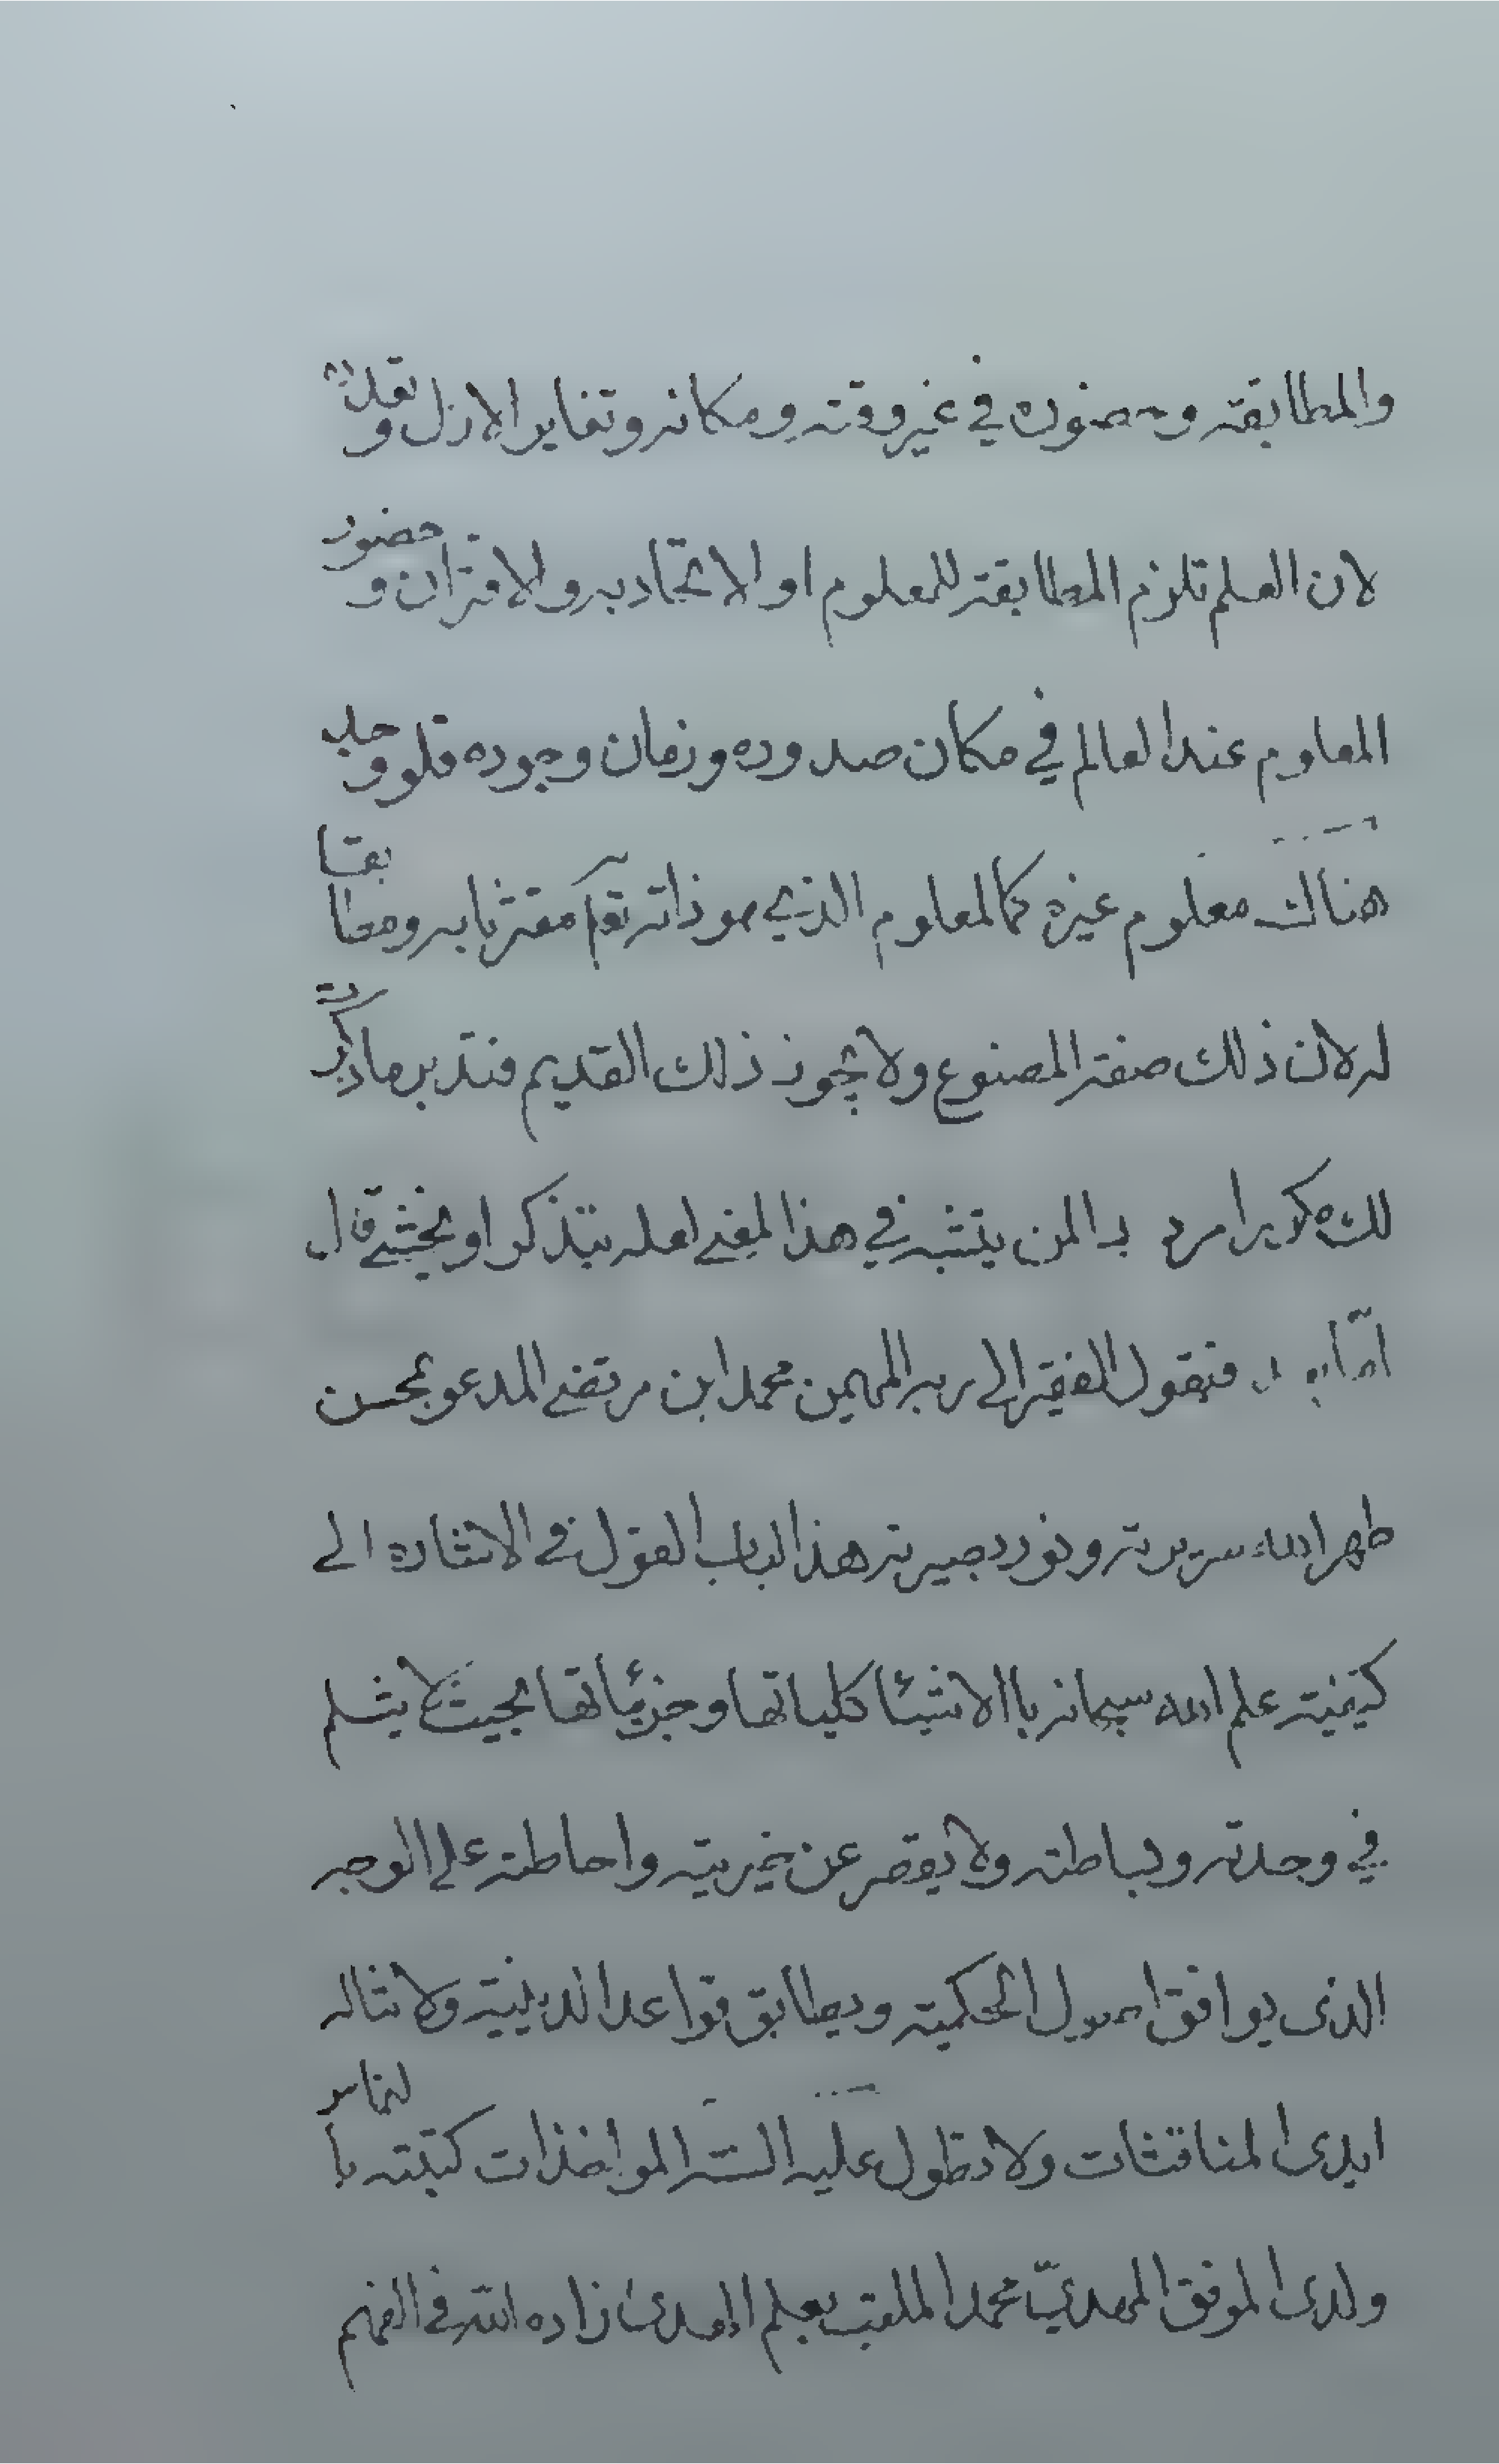 والمطابقته وحضوره في غير وقته ومكانه وتغاير الازل وتعدده
لان العلم تلزم المطابقته للمعلوم او الاتحاد به والاقتران وحضور
المعلوم عند العالم في مكان صدوره وزمان وجوده فلو وجد
هناك معلوم غيره كما المعلوم الذي هو ذاته تعم مقترنا به ومطابقا
له لان ذلك صفته المصنوع ولا يجوز ذلك القديم فتدبر ما ذكر
لك لمن يتشبه في هذا لمعنى لعله يتذكر او يخشى قال
اما بعد فيقول الفقير الى ربه المهيمن محمد ابن مرتضى المدعو بمحسن
طهر الله سريرته ونور بصيرته هذا لباب القول في الاشاره الى
كيفيته علم الله سبحانه باالاشيئا كلياتها وجزئياتها بحيث لا يثلم
في وحدته وبساطته ولا يقصر عن خيريته واحاطته على الوجه
الذى يوافق اصول الحكميته ويطابق قواعد الدينيته ولا تناله
ايدى المناقشات ولا تطول عليه السنه المواخذات كتبته بالتماس
ولدى الموفق المهديّ محمد الملقب بعلم الهدى زاده الله في الفهم